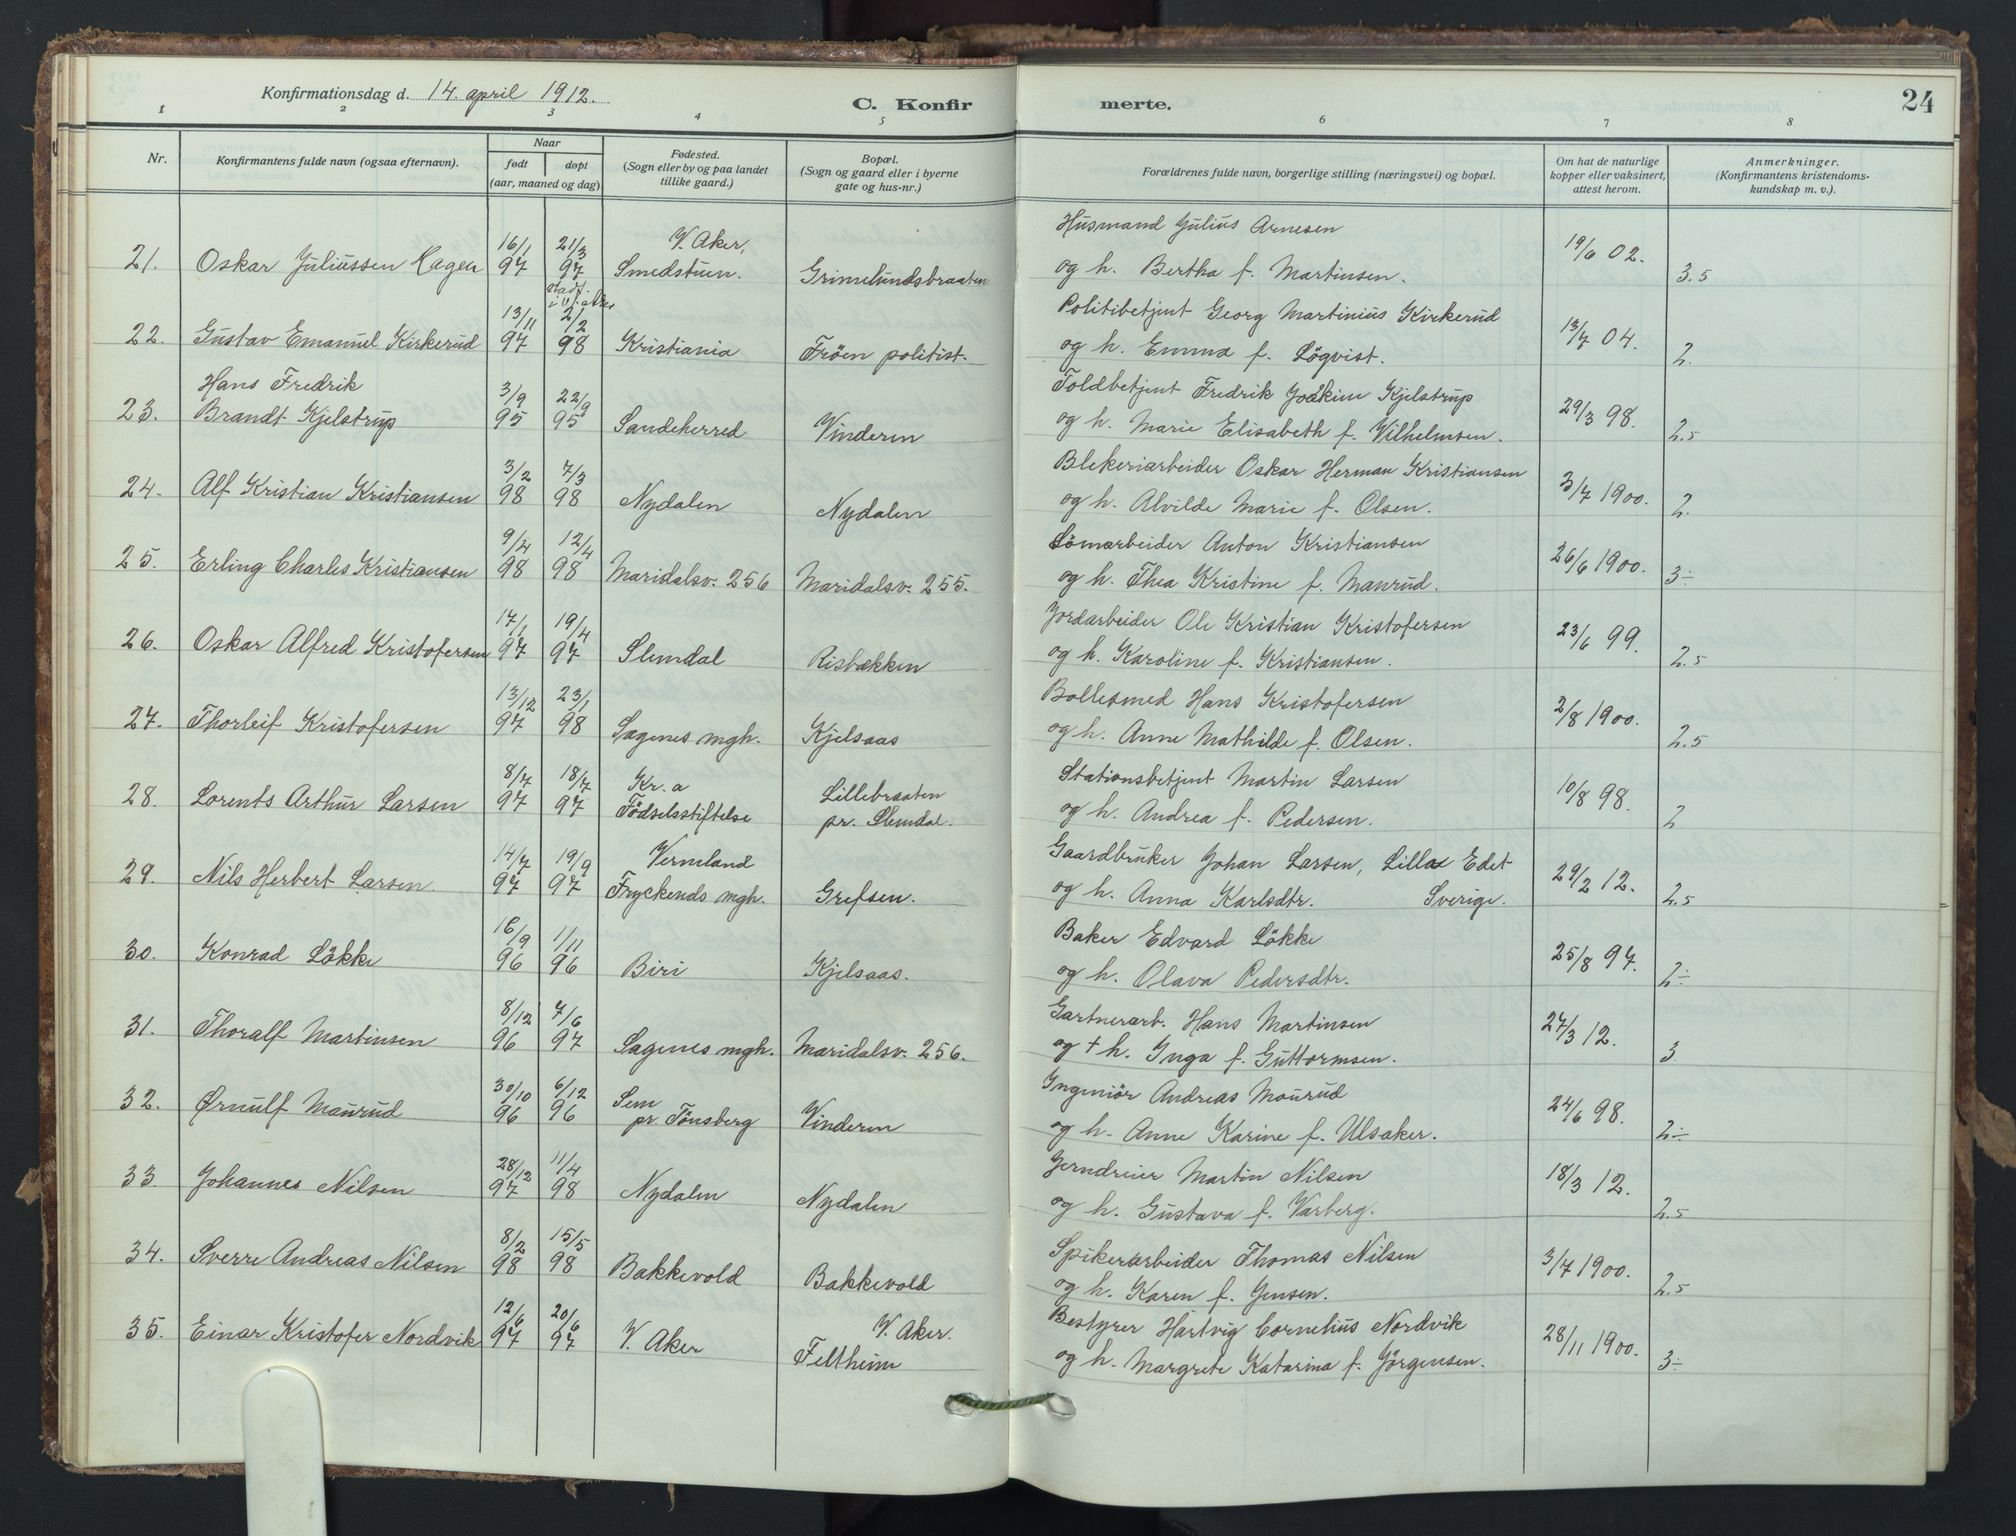 Konfirmationsdag d. 14. april 1912.
C. Konfirmerte.
24
1 2 3 4 5 6 7 8
Nr.
Konfirmantens fulde navn (ogsaa efternavn).
Naar
født
døpt
(aar, maaned og dag)
Fødested.
(Sogn eller by og paa landet
tillike gaard.)
Bopæl.
(Sogn og gaard eller i byerne
gate og hus-nr.)
Forældrenes fulde navn, borgerlige stilling (næringsvei) og bopæl.
Om hat de naturlige
kopper eller vaksinert,
attest herom.
Anmerkninger.
(Konfirmantens kristendoms-
kundskap m. v.).
21. Oskar Juliussen Hagen 16/1 97 21/3 97 V. Aker, Smedstuen. Grimelundsbraaten
Husmand Julius Arnesen
og h. Bertha f. Martinsen. 19/6 02. 3.5
22. Gustav Emanuel Kirkerud 13/11 97 2/2 98 i V. Aker Kristiania Frøen politist.
Politibetjent Georg Martinius Kirkerud
og h. Emma f. Lögvist. 13/7 04. 2.
23. Hans Fredrik
Brandt Kjelstrup 3/9 95 22/9 95 Sandeherred Vinderen
Toldbetjent Fredrik Joakim Kjelstrup
og h. Marie Elisabeth f. Vilhelmsen. 29/3 98. 2.5
24. Alf Kristian Kristiansen 3/2 98 7/3 98 Nydalen Nydalen
Blekeriarbeider Oskar Herman Kristiansen
og h. Alvilde Marie f. Olsen. 3/7 1900. 2.
25. Erling Charles Kristiansen 9/4 98 12/4 98 Maridalsv. 256 Maridalsv. 255.
Sömarbeider Anton Kristiansen
og h. Thea Kristine f. Maurud. 26/6 1900. 3÷
26. Oskar Alfred Kristofersen 17/1 97 19/4 97 Slemdal Risbækken
Jordarbeider Ole Kristian Kristofersen
og h. Karoline f. Kristiansen. 23/6 99. 2.5
27. Thorleif Kristofersen 13/12 97 23/1 98 Sagenes mgh. Kjelsaas
Boltesmed Hans Kristofersen
og h. Anne Mathilde f. Olsen. 2/8 1900. 2.5
28. Lorents Arthur Larsen 8/7 97 18/7 97 Kr.a
Födselsstiftelse Lillebraaten
pr. Slemdal.
Stationsbetjent Martin Larsen
og h. Andrea f. Pedersen. 10/8 98. 2
29. Nils Herbert Larsen. 14/7 97 19/9 97 Vermland
Fryckends mgh. Grefsen.
Gaardbruker Johan Larsen, Lilla Edet
og h. Anna Karlsdtr. Sverige. 29/2 12. 2.5
30. Konrad Lökke 16/9 96 1/11 96 Biri Kjelsaas.
Baker Edvard Lökke
og h. Olava Pedersdtr. 25/8 97. 2÷
31. Thoralf Martinsen 8/12 96 7/6 97 Sagenes mgh. Maridalsv. 256.
Gartnerarb. Hans Martinsen
og † h. Inga f. Guttormsen. 27/3 12. 3
32. Ørnulf Maurud 30/10 96 6/12 96 Sem
pr. Tönsberg Vinderen
Ingeniör Andreas Mourud
og h. Anne Karine f. Ulsaker. 24/6 98. 2÷
33. Johannes Nilsen 28/12 97 11/4 98 Nydalen Nydalen
Jerndreier Martin Nilsen
og h. Gustava f. Varberg. 18/3 12. 2.5
34. Sverre Andreas Nilsen 8/2 98 15/5 98 Bakkevold Bakkevold
Spikerarbeider Thomas Nilsen
og h. Karen f. Jensen. 3/7 1900. 2.5
35. Einar Kristofer Nordvik 12/6 97 20/6 97 V. Aker V. Aker.
Feltheim
Bestyrer Hartvig Cornelius Nordvik
og h. Margrete Katarina f. Jörgensen. 28/11 1900. 3÷